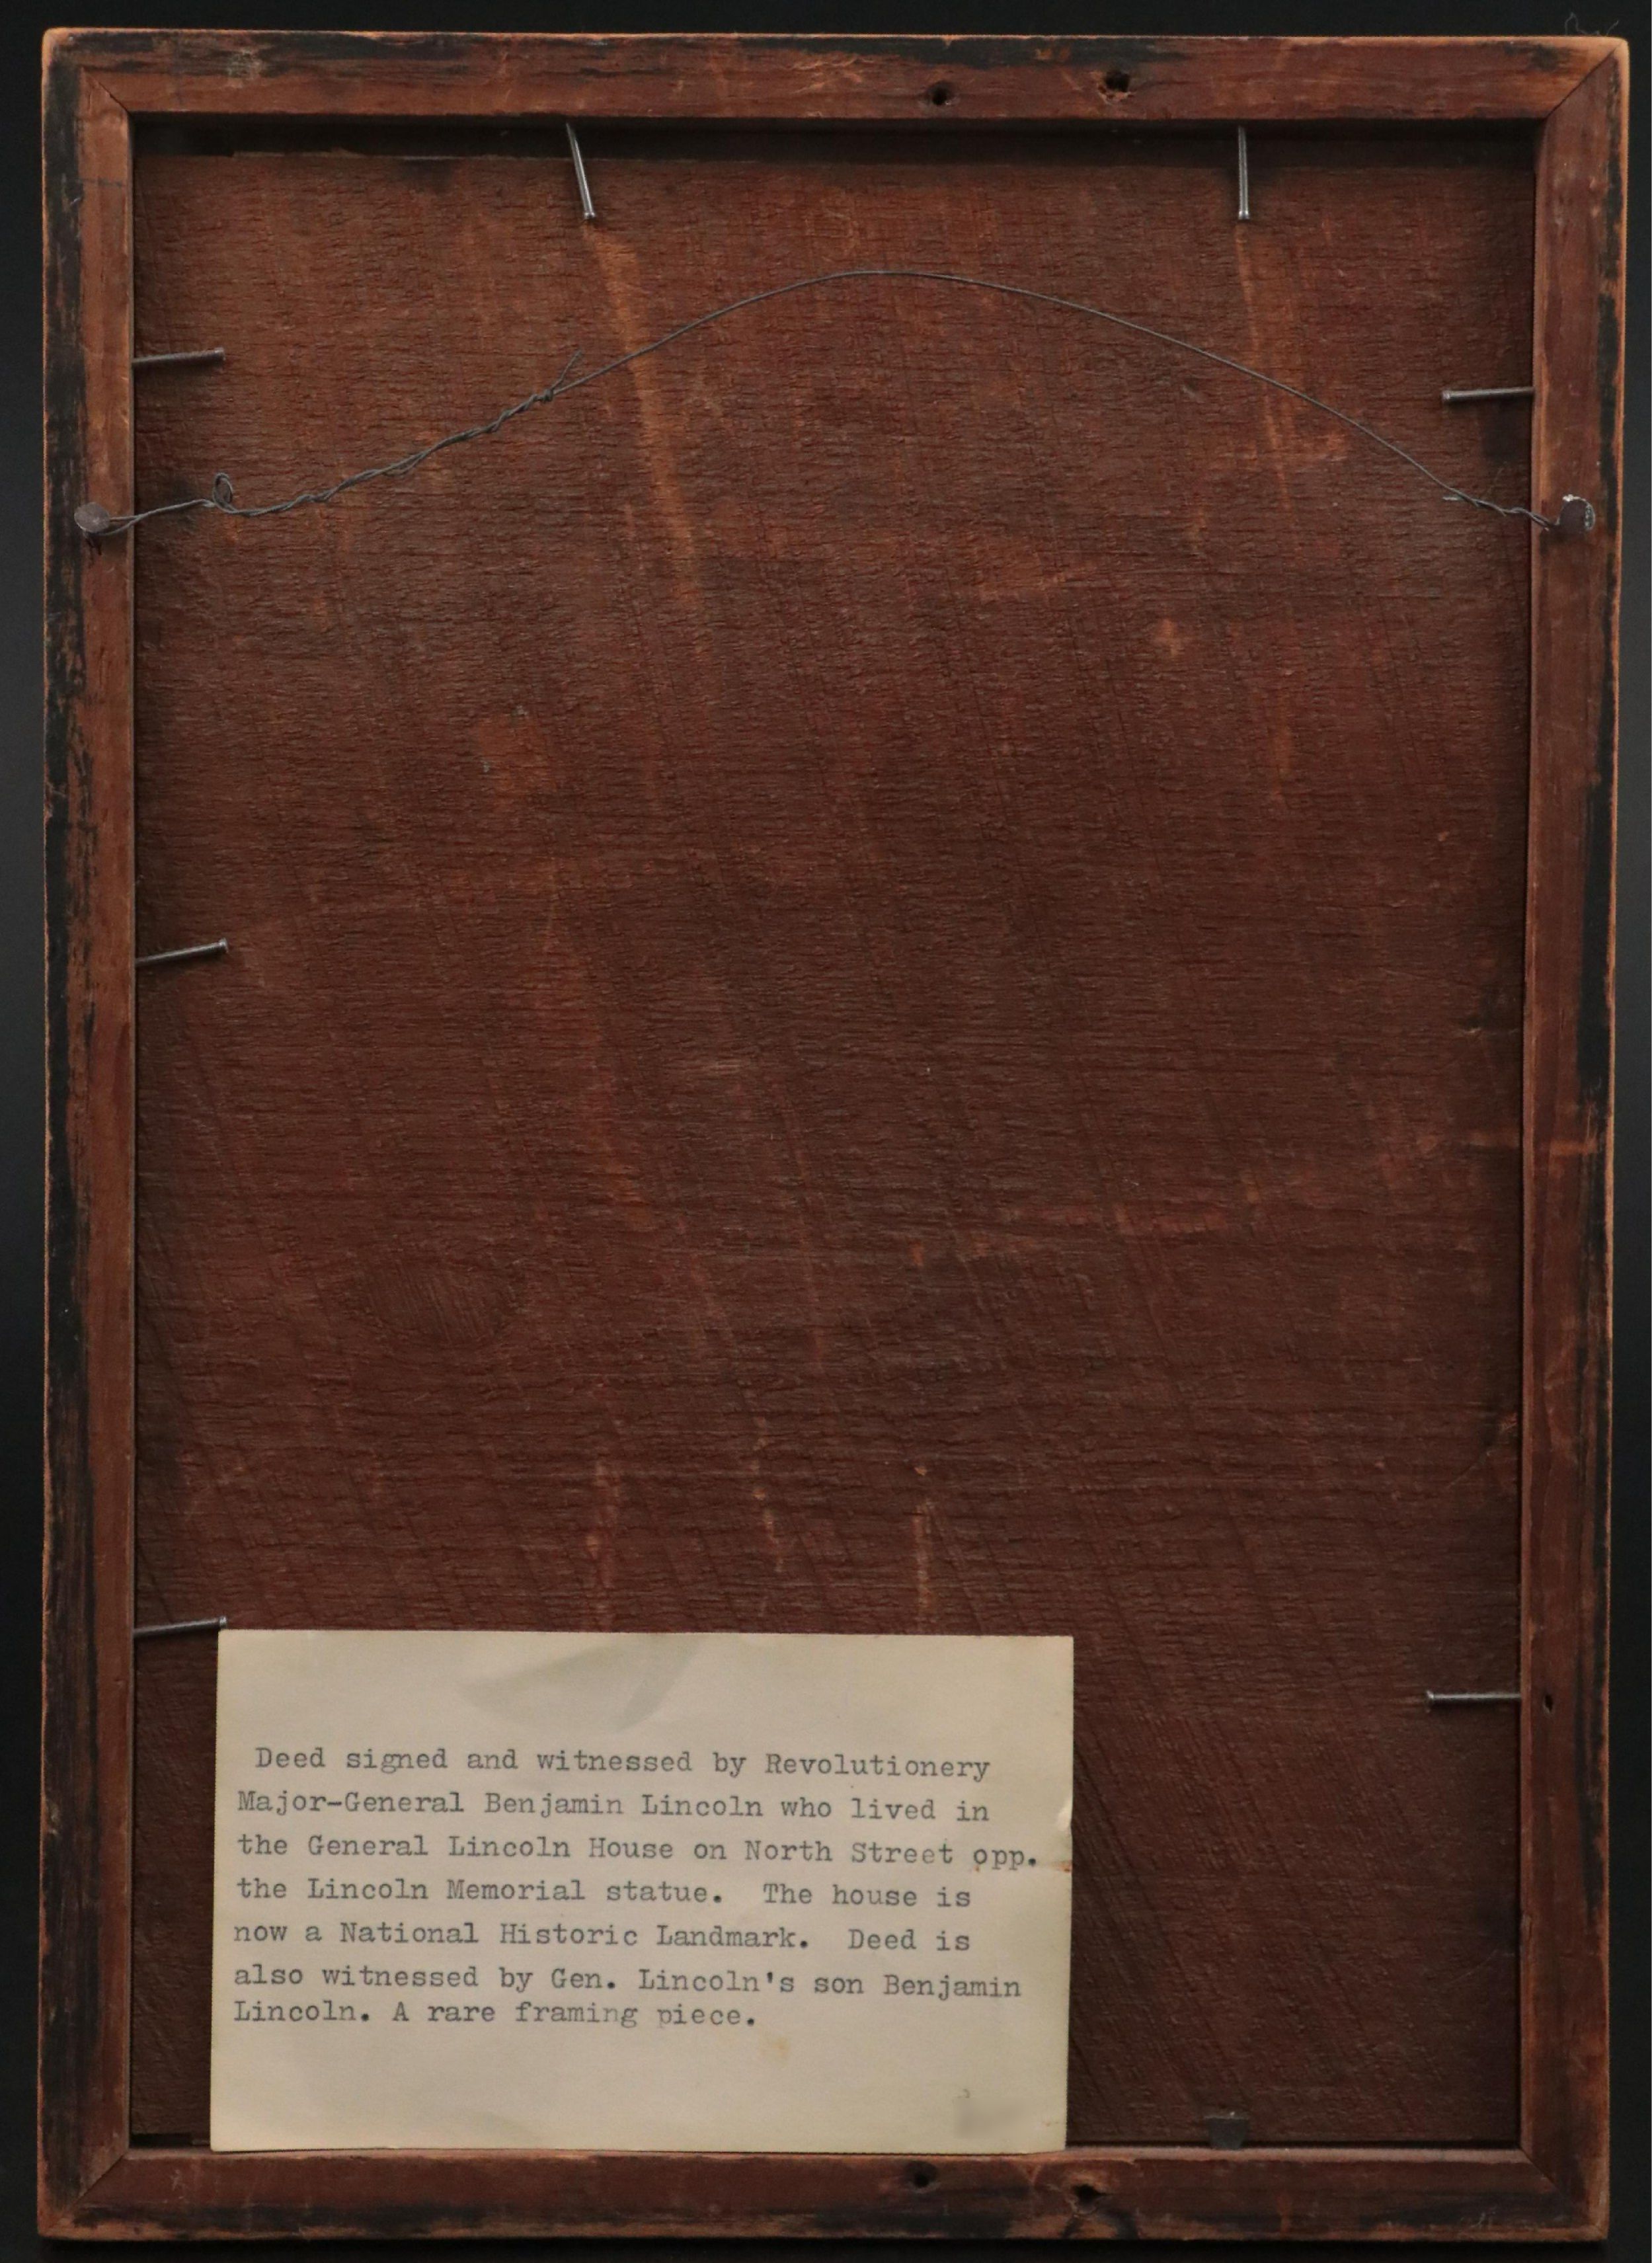 Deed signed and witnessed by Revolutionery
Major-General Benjamin Lincoln who lived in
the General Lincoln House on North Street opp.
the Lincoln Memorial statue.  The house is
now a National Historic Landmark.  Deed is
also witnessed by Gen. Lincoln's son Benjamin
Lincoln. A rare framing piece.